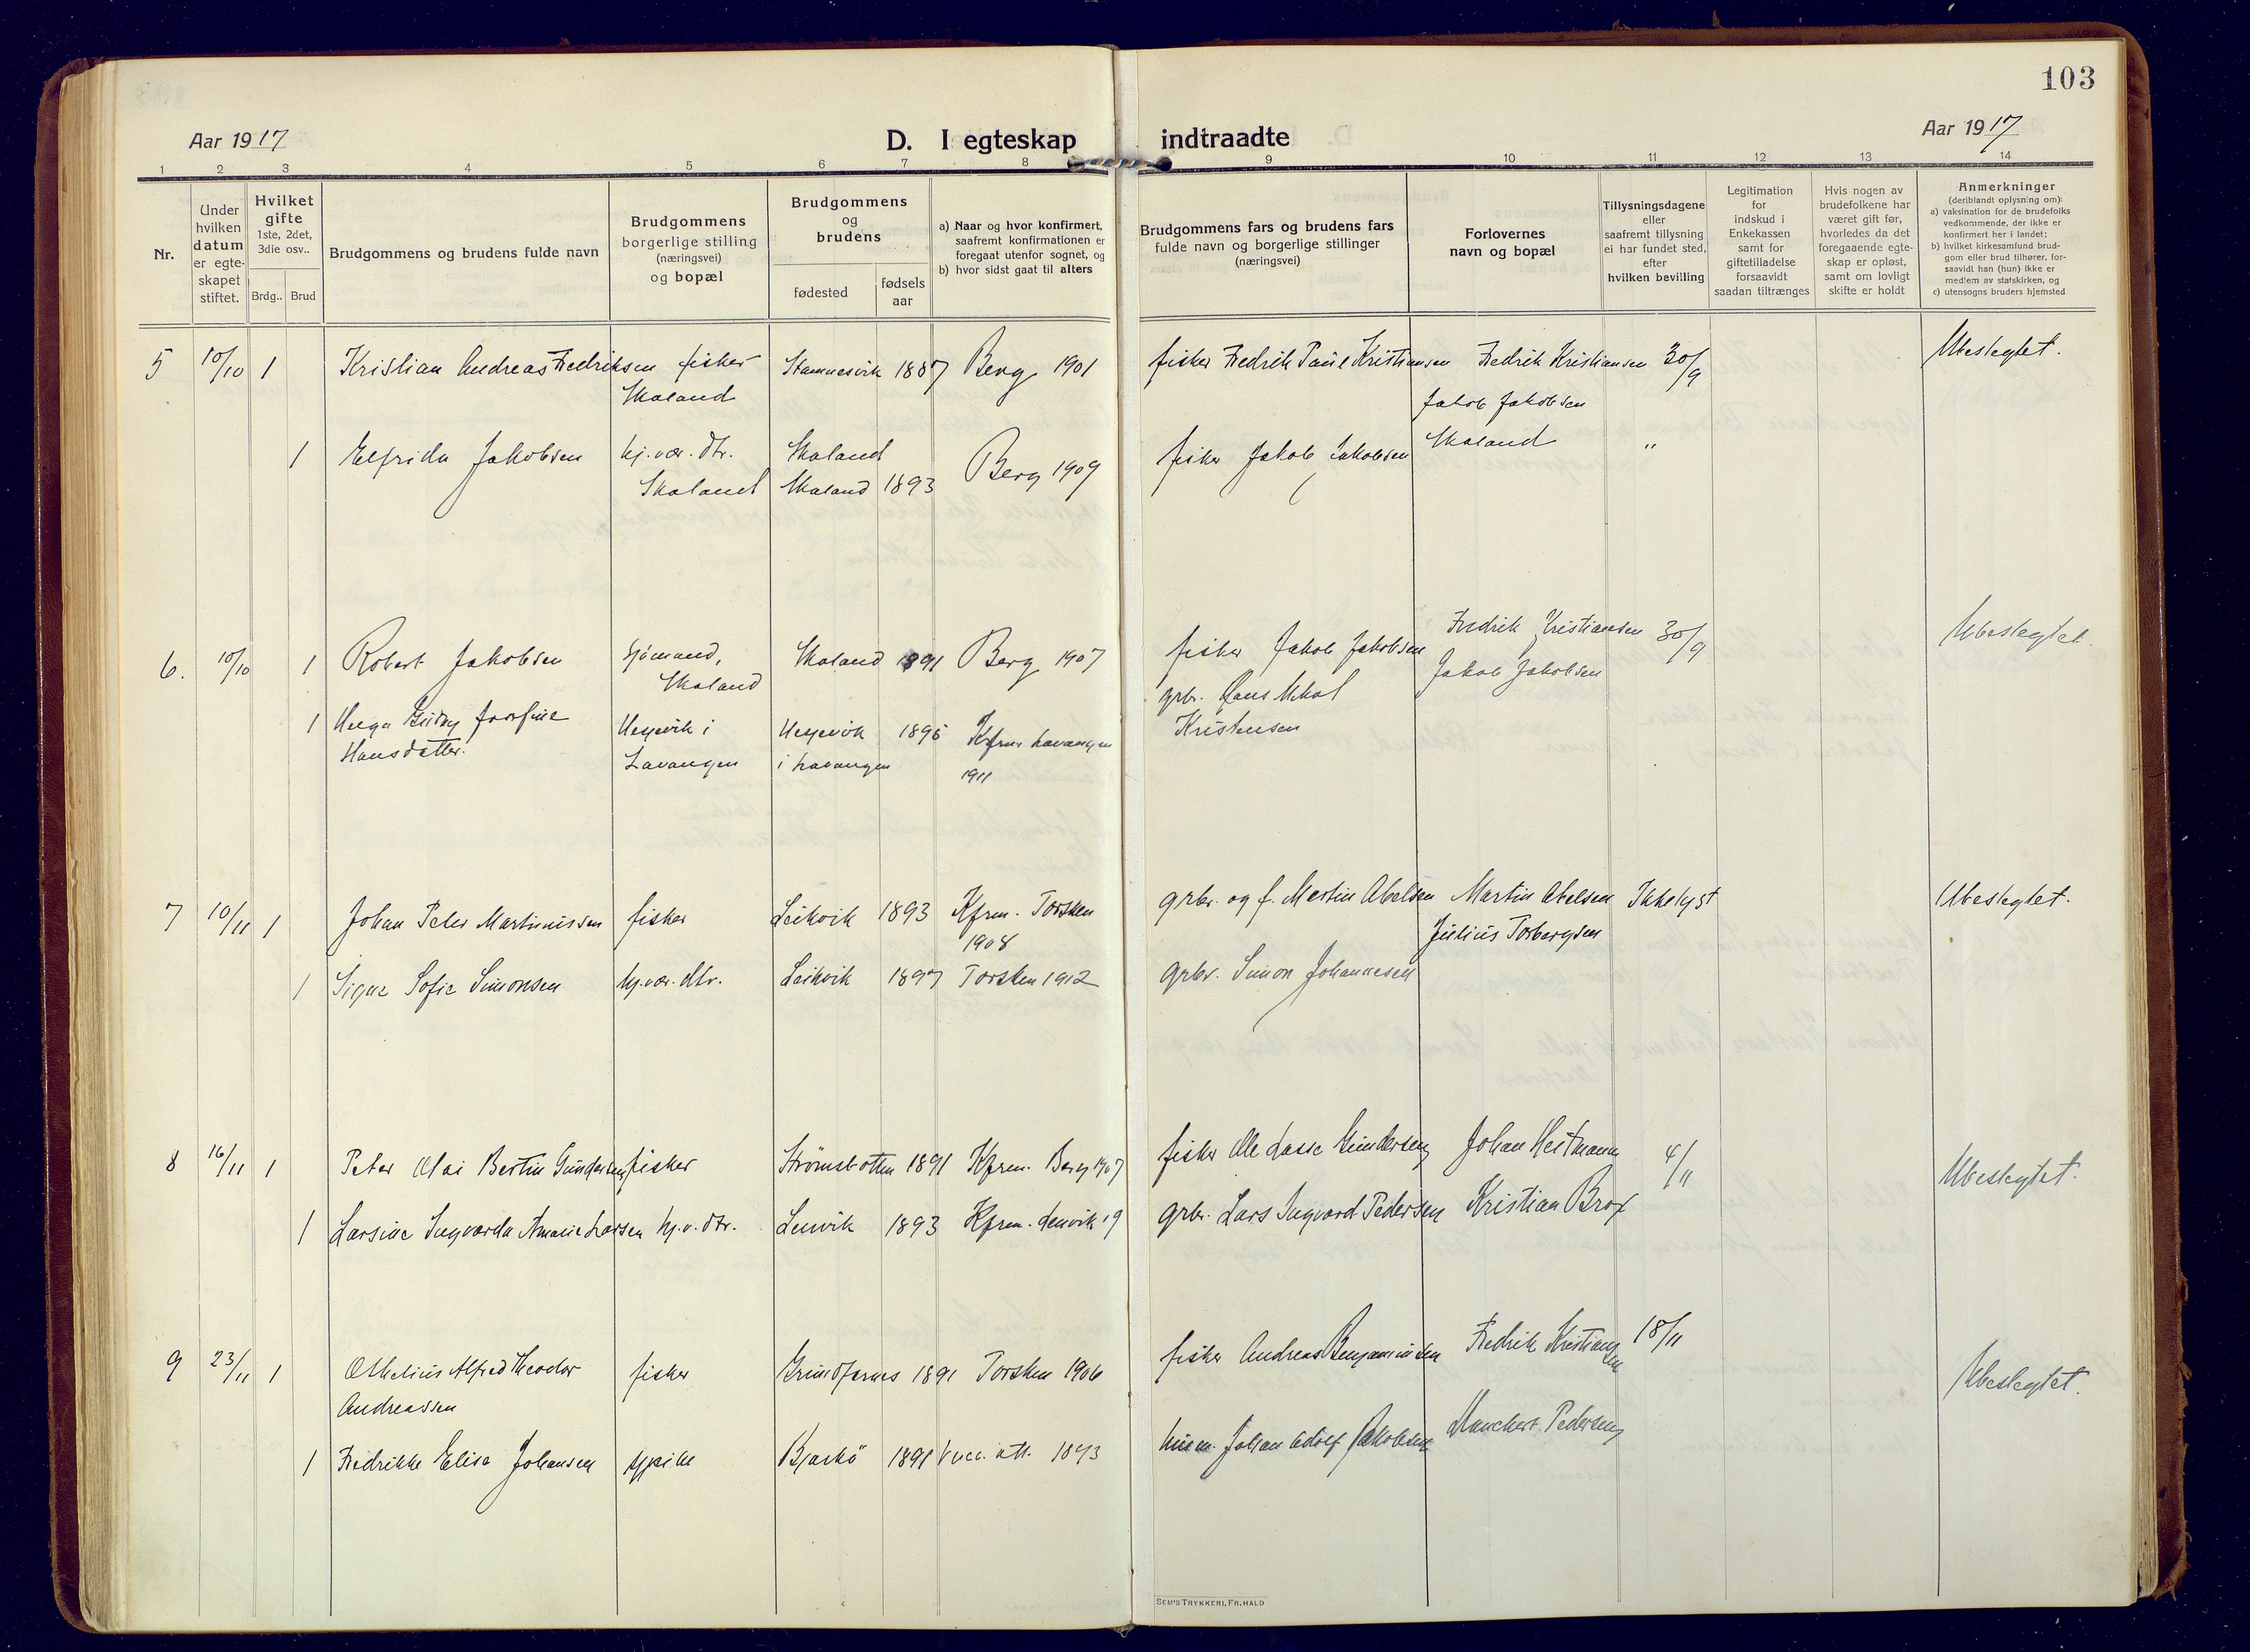 103
Aar 1917
D. I egteskap indtraadte
Aar 1917
1 2 3 4 5 6 7 8 9 10 11 12 13 14
Nr.
Under hvilken datum er egteskapet stiftet.
Hvilket gifte 1ste, 2det, 3die osv..
Brdg.. Brud
Brudgommens og brudens fulde navn
Brudgommens borgerlige stilling (næringsvei) og bopæl
Brudgommens og brudens
fødested
fødselsaar
a) Naar og hvor konfirmert, saafremt konfirmationen er foregaat utenfor sognet, og
b) hvor sidst gaat til alters
Brudgommens fars og brudens fars fulde navn og borgerlige stillinger (næringsvei)
Forlovernes navn og bopæl
Tillysningsdagene eller saafremt tillysning ei har fundet sted, efter hvilken bevilling
Legitimation for indskud i Enkekassen samt for giftetilladelse forsaavidt saadan tiltrænges
Hvis nogen av brudefolkene har været gift før, hvorledes da det foregaaende egteskap er opløst, samt om lovligt skifte er holdt
Anmerkninger (deriblandt oplysning om):
a) vaksination for de brudefolks vedkommende, der ikke er konfirmert her i landet;
b) hvilket kirkesamfund brudgom eller brud tilhører, forsaavidt han (hun) ikke er medlem av statskirken, og
c) utensogns bruders hjemsted
5 10/10 1 Kristian Andreas Fredriksen fisker Stamnesvik 1887 Berg 1901 fisker Fredrik Paul Kristiansen Fredrik Kristiansen 30/9 Ubeslegtet.
Skaland Jakob Jakobsen
1 Elfrida Jakobsen hj.vær. dtr. Skaland fisker Jakob Jakobsen Skaland "
Skaland Skaland 1893 Berg 1909
6. 10/10 1 Robert Jakobsen Sjömand, Skaland 1891 Berg 1907 fisker Jakob Jakobsen Fredrik Kristiansen 30/9 Ubeslegtet.
Skaland grbr. Hans Mikal Jakob Jakobsen
1 Helga Gudny Josefine Hesjevik i Hesjevik 1895 Kfrm. Lavangen Kristensen
Hansdatter. Lavangen i Lavangen 1911
7 10/11 1 Johan Peter Martinussen fisker Leikvik 1893 Kfrm. Torsken grbr. og f. Martin Abelsen Martin Abelsen Ikke lyst Ubeslegtet.
1908 Julius Torbergsen
1 Signe Sofie Simonsen hj.vær. dtr. Leikvik 1897 Torsken 1912 grbr. Simon Johannesen
8 16/11 1 Peter Olai Bertin Gundersen fisker Strömsbotten 1891 Kfrm. Berg 1907 fisker Ole Lasse Gundersen Johan Heitmann 4/11 Ubeslegtet.
1 Larsine Ingvarda Amalie Larsen hj.v. dtr. Lenvik 1893 Kfrm. Lenvik 19 grbr. Lars Ingvard Pedersen Kristian Brox
9 23/11 1 Othelius Alfred Theodor fisker 1891 Torsken 1906 fisker Andreas Benjaminsen Fredrik Kristiansen 18/11 Ubeslegtet.
Andreassen
1 Fredrikke Elise Johansen Bjarkö 1891 Vacc. att. 1893 husm. Johan Adolf Jakobsen Pedersen
SEM'S TRYKKERI, FR. HALD